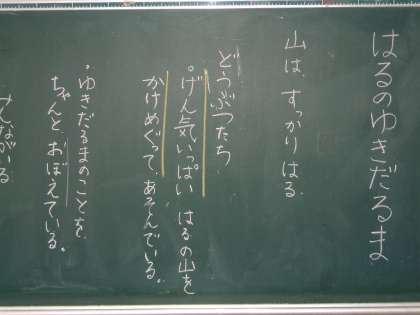 はるのゆきだるま
山は、すっかりはる
どうぶつたち
・げん気いっぱい はるの山を
かけめぐって、あそんでいる。
・ゆきだるまのことを
ちゃんと、おぼえている。
みんながいる